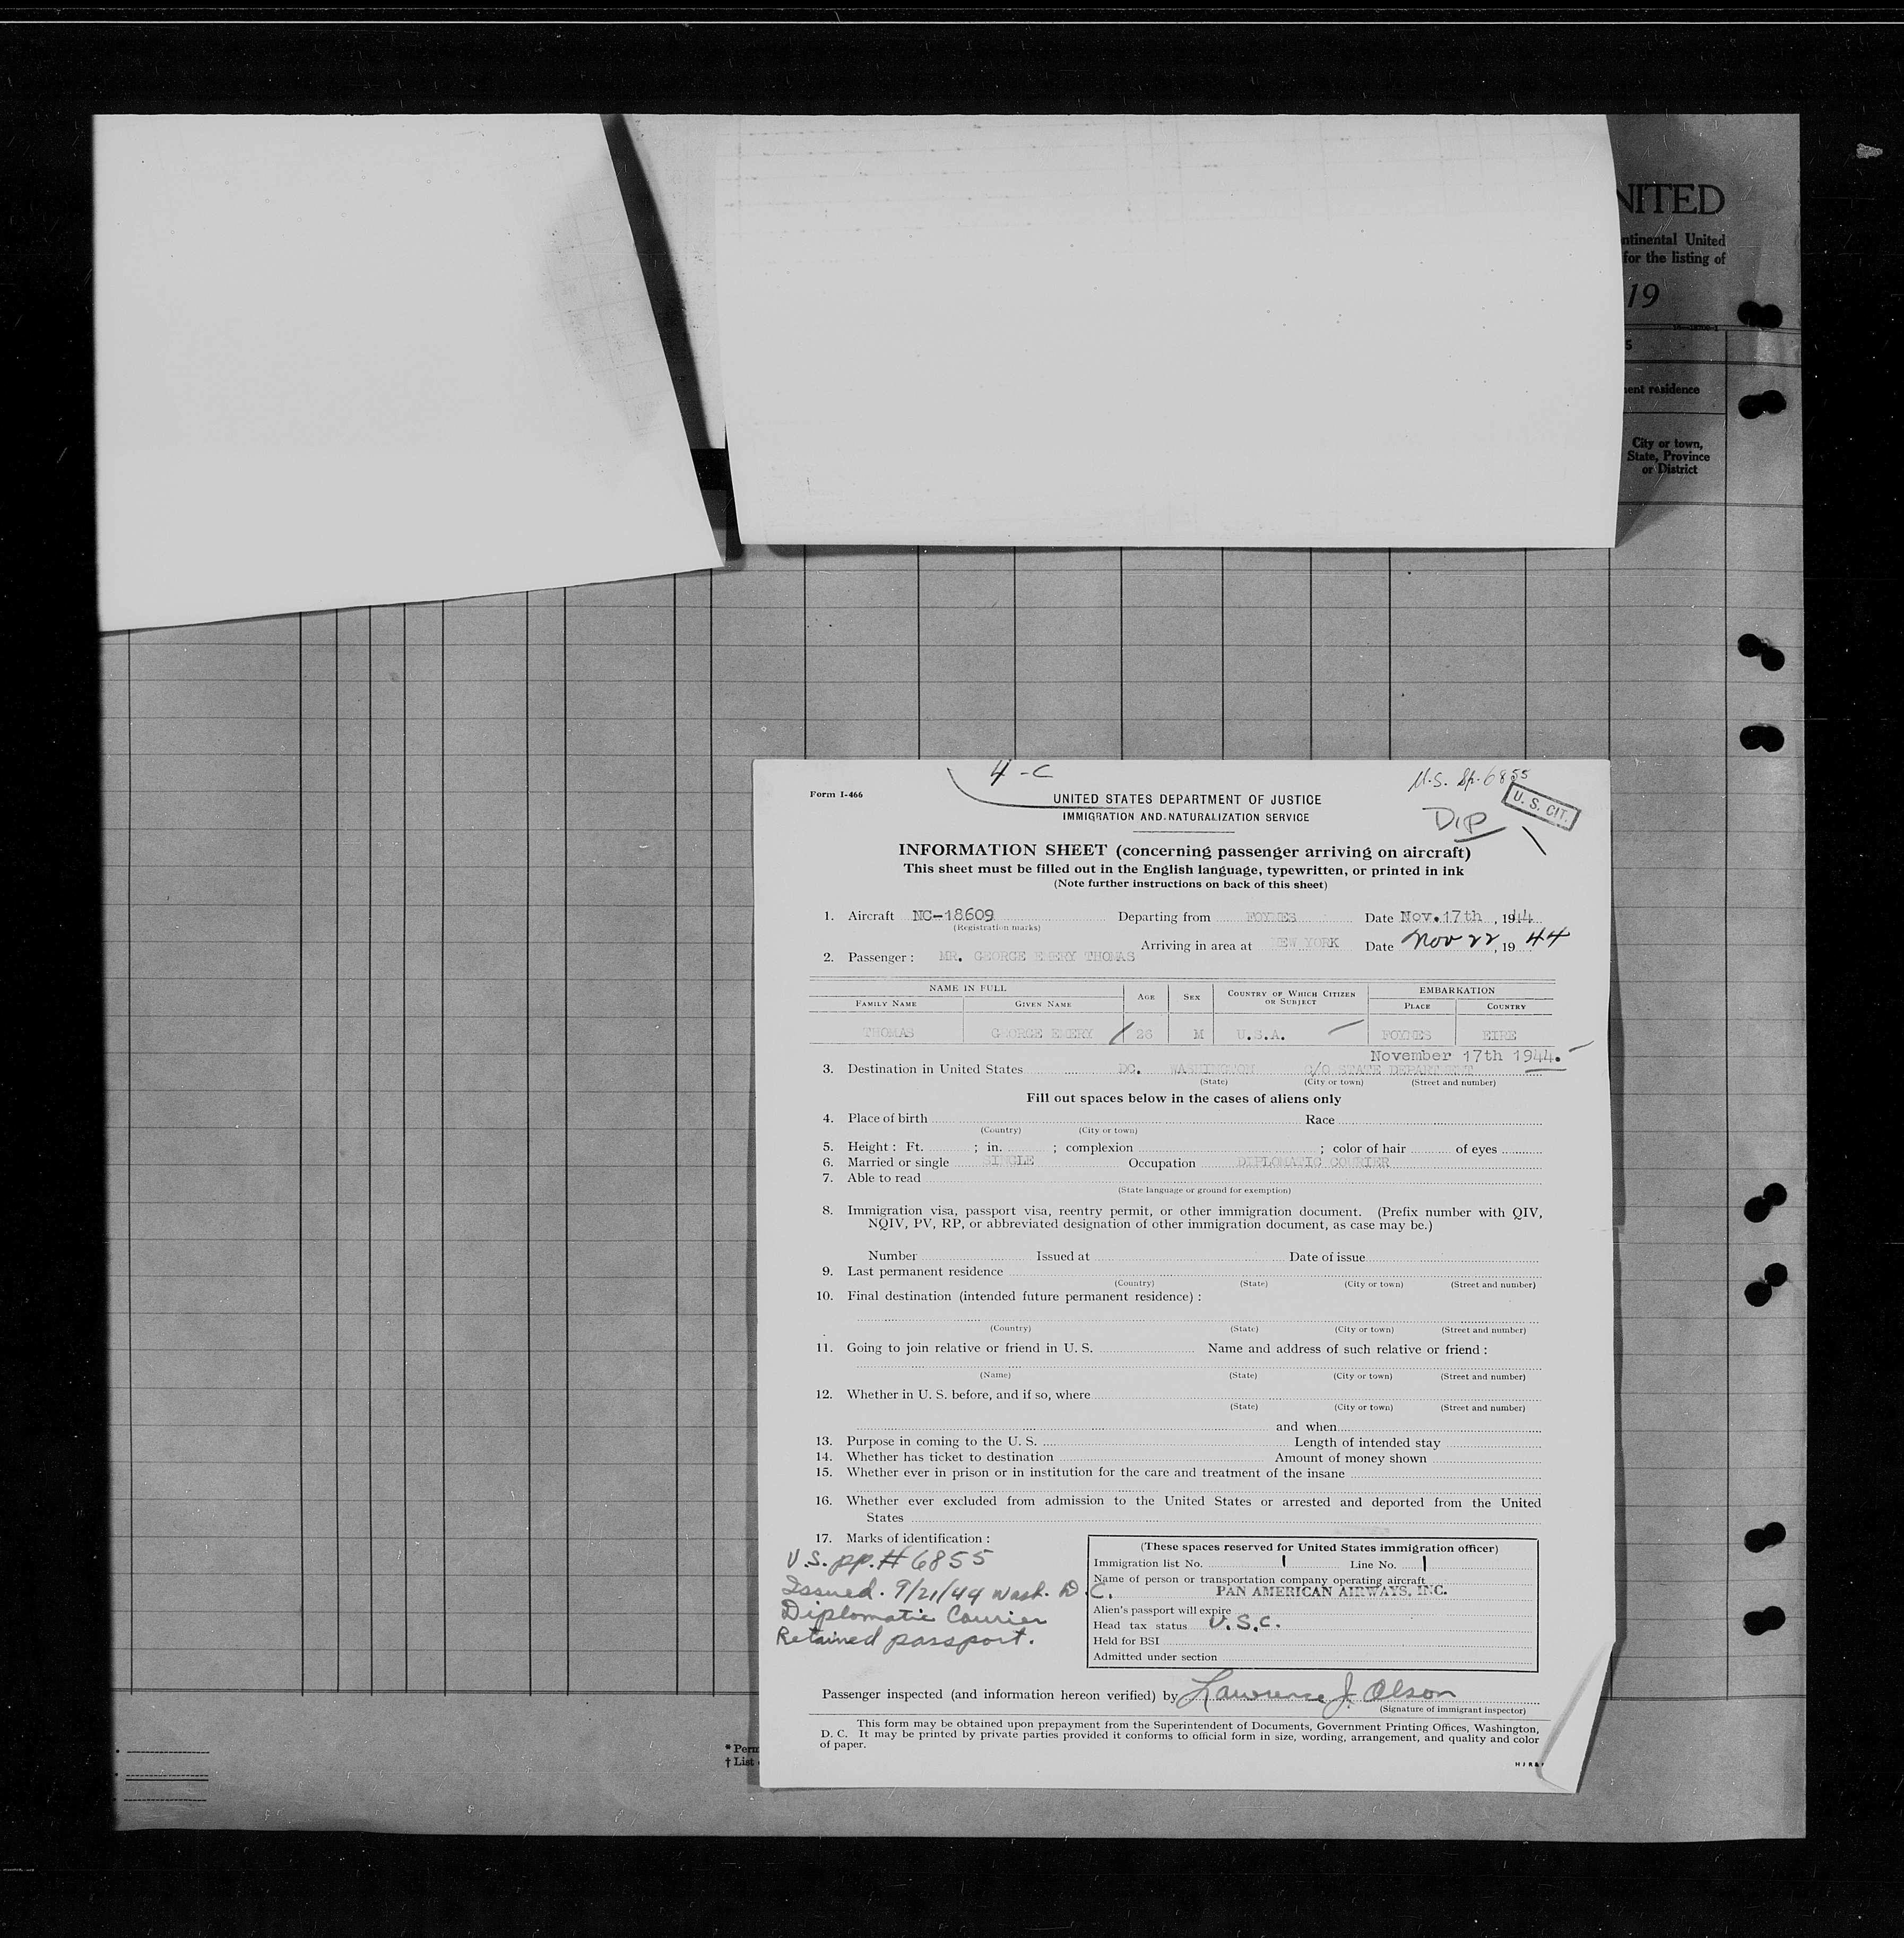 NITED
ntinental United
for the listing of
19
5
ent residence
City or town,
State, Province
or District
4-C
U.S. Sp. 6855
Form I-466
UNITED STATES DEPARTMENT OF JUSTICE
IMMIGRATION AND NATURALIZATION SERVICE
DIP
U. S. CIT.
INFORMATION SHEET (concerning passenger arriving on aircraft)
This sheet must be filled out in the English language, typewritten, or printed in ink
(Note further instructions on back of this sheet)
1. Aircraft NC-18609 Departing from FOYNES Date Nov. 17th, 1944
(Registration marks)
Arriving in area at NEW YORK Date Nov 22, 19 44
2. Passenger: MR. GEORGE EMERY THOMAS
NAME IN FULL AGE SEX COUNTRY OF WHICH CITIZEN OR SUBJECT EMBARKATION
FAMILY NAME GIVEN NAME PLACE COUNTRY
THOMAS GEORGE EMERY 26 M U.S.A. FOYNES EIRE
November 17th 1944.
3. Destination in United States DC. WASHINGTON C/O STATE DEPARTMENT
(State) (City or town) (Street and number)
Fill out spaces below in the cases of aliens only
4. Place of birth Race
(Country) (City or town)
5. Height: Ft. ; in. ; complexion ; color of hair of eyes
6. Married or single SINGLE Occupation DIPLOMATIC COURIER
7. Able to read
(State language or ground for exemption)
8. Immigration visa, passport visa, reentry permit, or other immigration document. (Prefix number with QIV,
NQIV, PV, RP, or abbreviated designation of other immigration document, as case may be.)
Number Issued at Date of issue
9. Last permanent residence
(Country) (State) (City or town) (Street and number)
10. Final destination (intended future permanent residence):
(Country) (State) (City or town) (Street and number)
11. Going to join relative or friend in U. S. Name and address of such relative or friend:
(Name) (State) (City or town) (Street and number)
12. Whether in U. S. before, and if so, where
(State) (City or town) (Street and number)
and when
13. Purpose in coming to the U. S. Length of intended stay
14. Whether has ticket to destination Amount of money shown
15. Whether ever in prison or in institution for the care and treatment of the insane
16. Whether ever excluded from admission to the United States or arrested and deported from the United
States
17. Marks of identification:
U.S. pp. # 6855
Issued. 9/21/44 Wash. D.C.
Diplomatic Courier
Retained passport.
(These spaces reserved for United States immigration officer)
Immigration list No. 1 Line No. 1
Name of person or transportation company operating aircraft
PAN AMERICAN AIRWAYS, INC.
Alien's passport will expire
Head tax status U.S.C.
Held for BSI
Admitted under section
Passenger inspected (and information hereon verified) by Lawrence J. Olson
(Signature of immigrant inspector)
This form may be obtained upon prepayment from the Superintendent of Documents, Government Printing Offices, Washington,
D. C. It may be printed by private parties provided it conforms to official form in size, wording, arrangement, and quality and color
of paper.
* Perm
† List